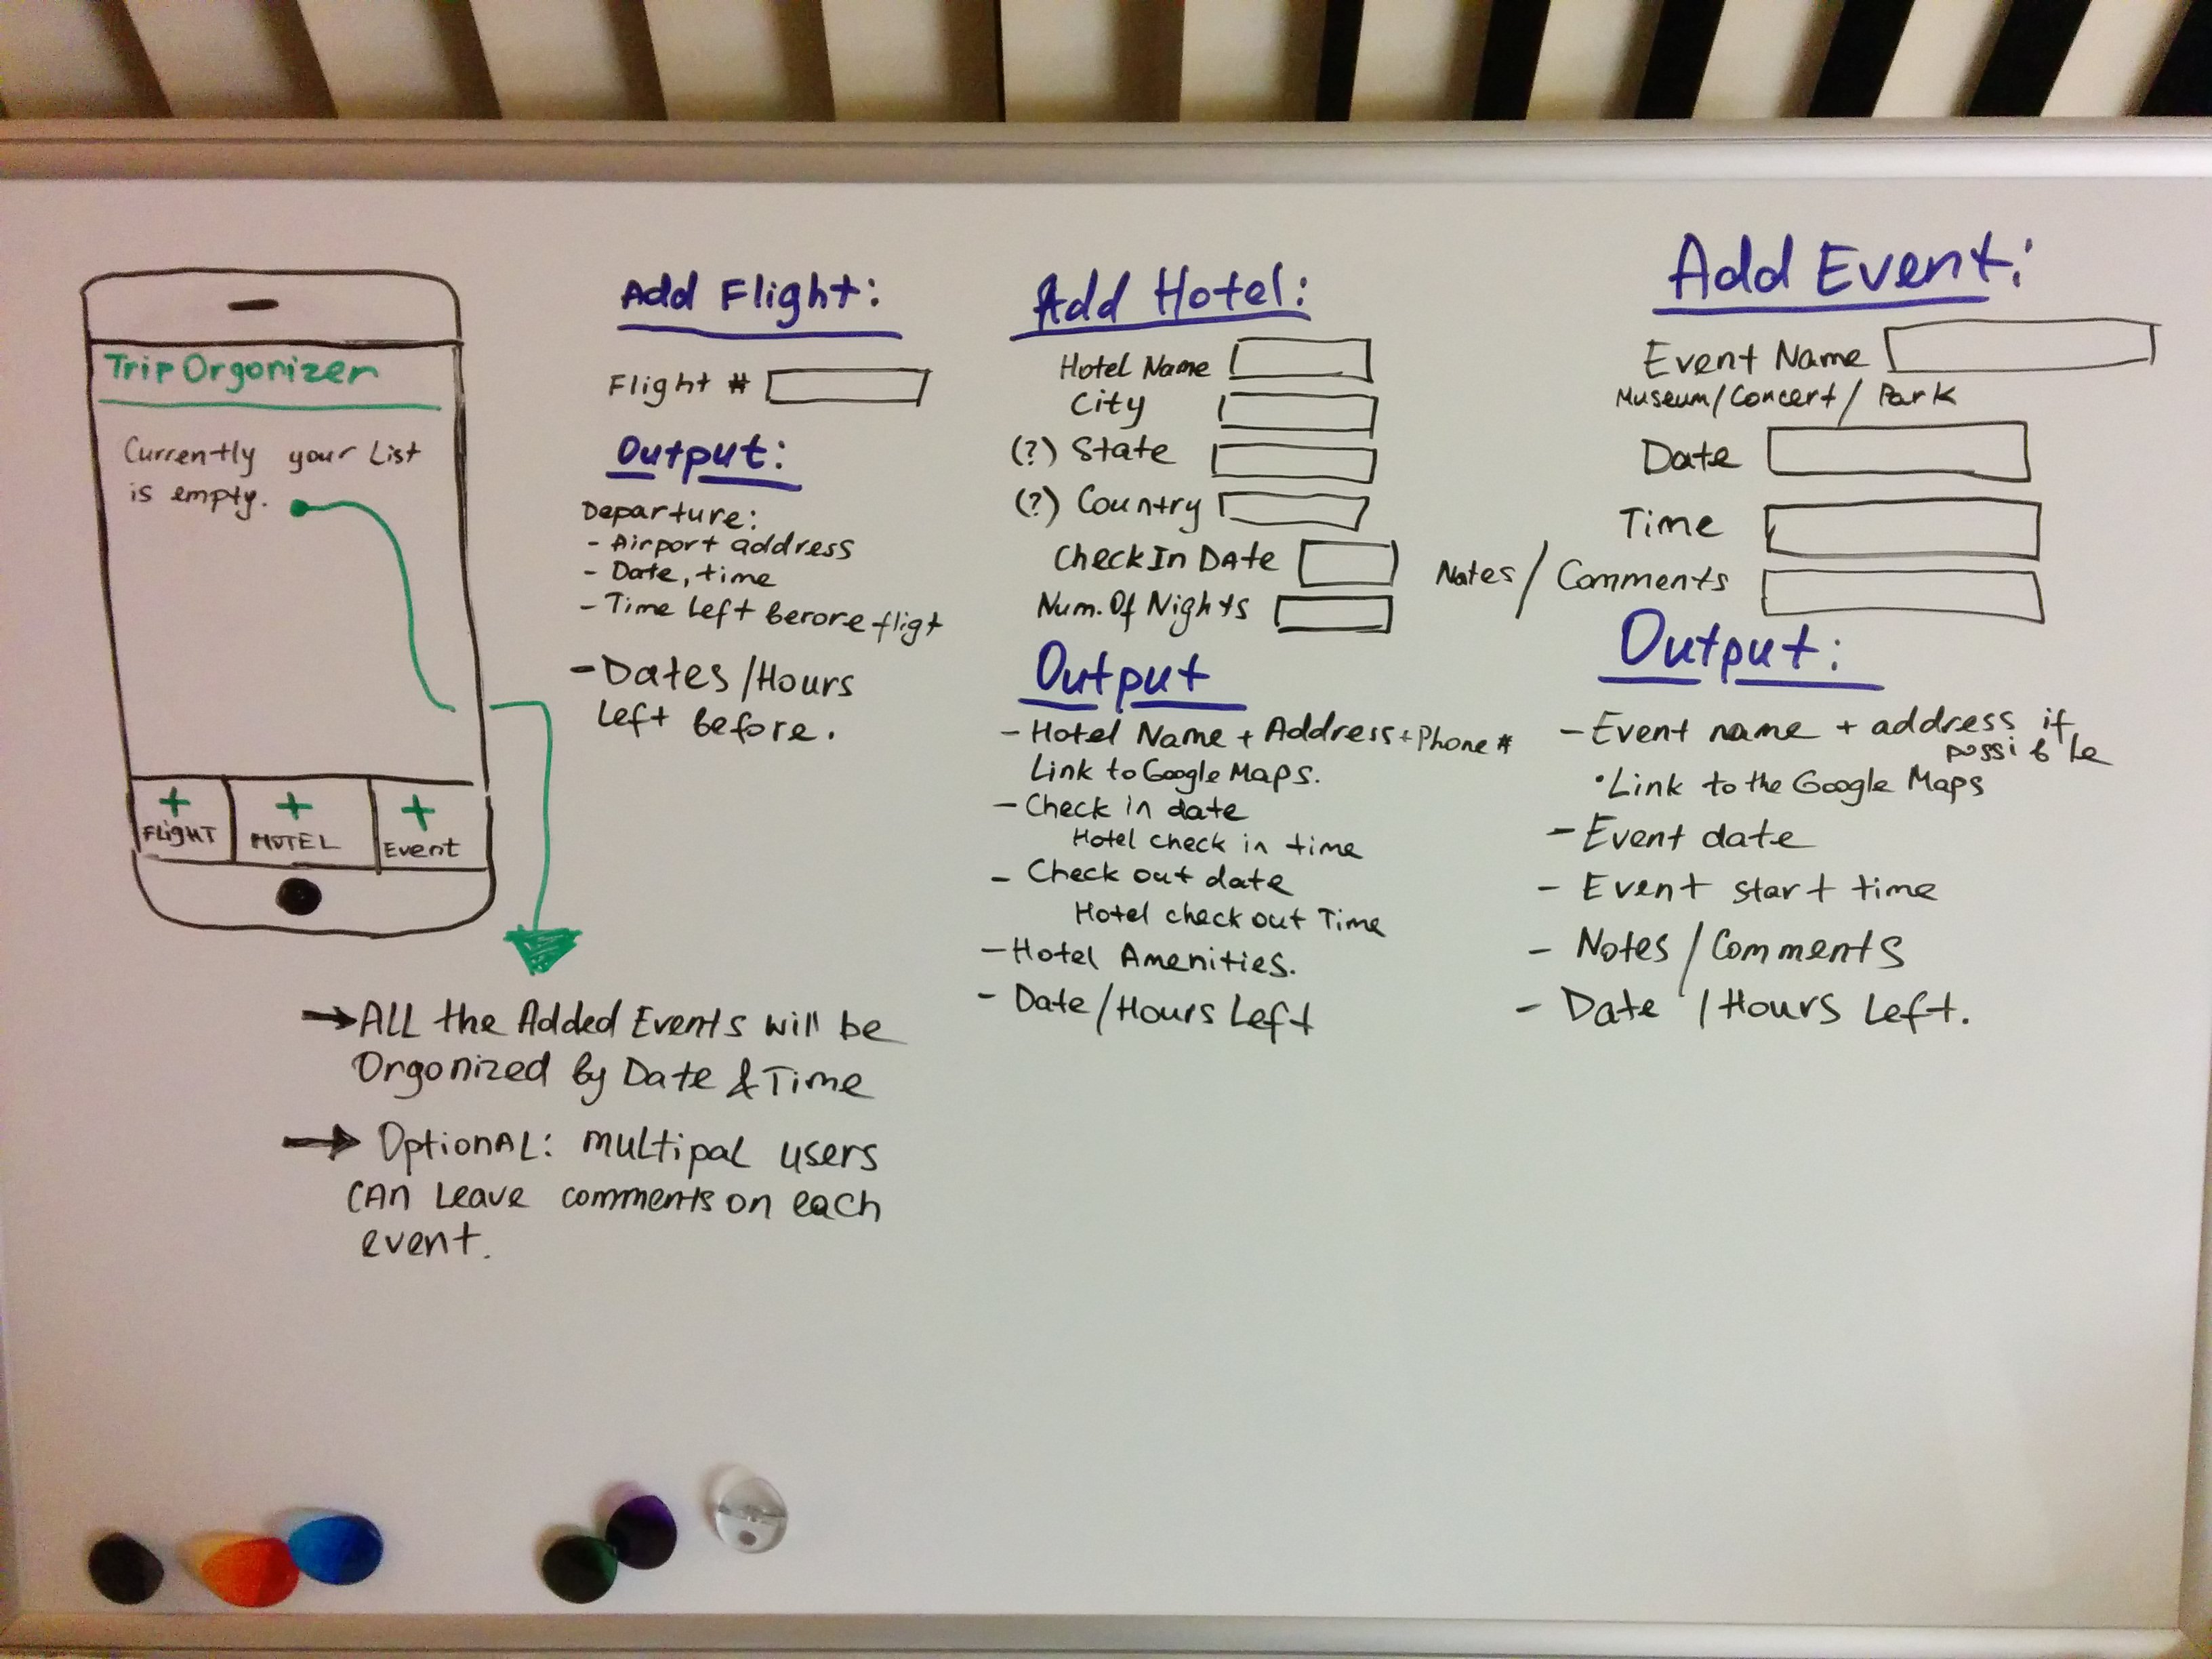 Trip Orgonizer
Currently your List
is empty.
+ + +
FLigHT HOTEL Event
→ ALL the Added Events will be
Orgonized by Date & Time
→ OptionAL: multipal users
CAn Leave comments on each
event.
Add Flight:
Flight #
Output:
Departure:
- Airport address
- Date, time
- Time Left berore fligt
- Dates/Hours
Left before.
Add Hotel:
Hotel Name
City
(?) State
(?) Country
Check In DAte
Num. Of Nights
Output
- Hotel Name + Address + Phone #
Link to Google Maps.
- Check in date
Hotel check in time
- Check out date
Hotel check out Time
- Hotel Amenities.
- Date/Hours Left
Add Event:
Event Name
Museum/Concert/Park
Date
Time
Notes/Comments
Output:
- Event name + address if
possible
• Link to the Google Maps
- Event date
- Event start time
- Notes/Comments
- Date/Hours Left.